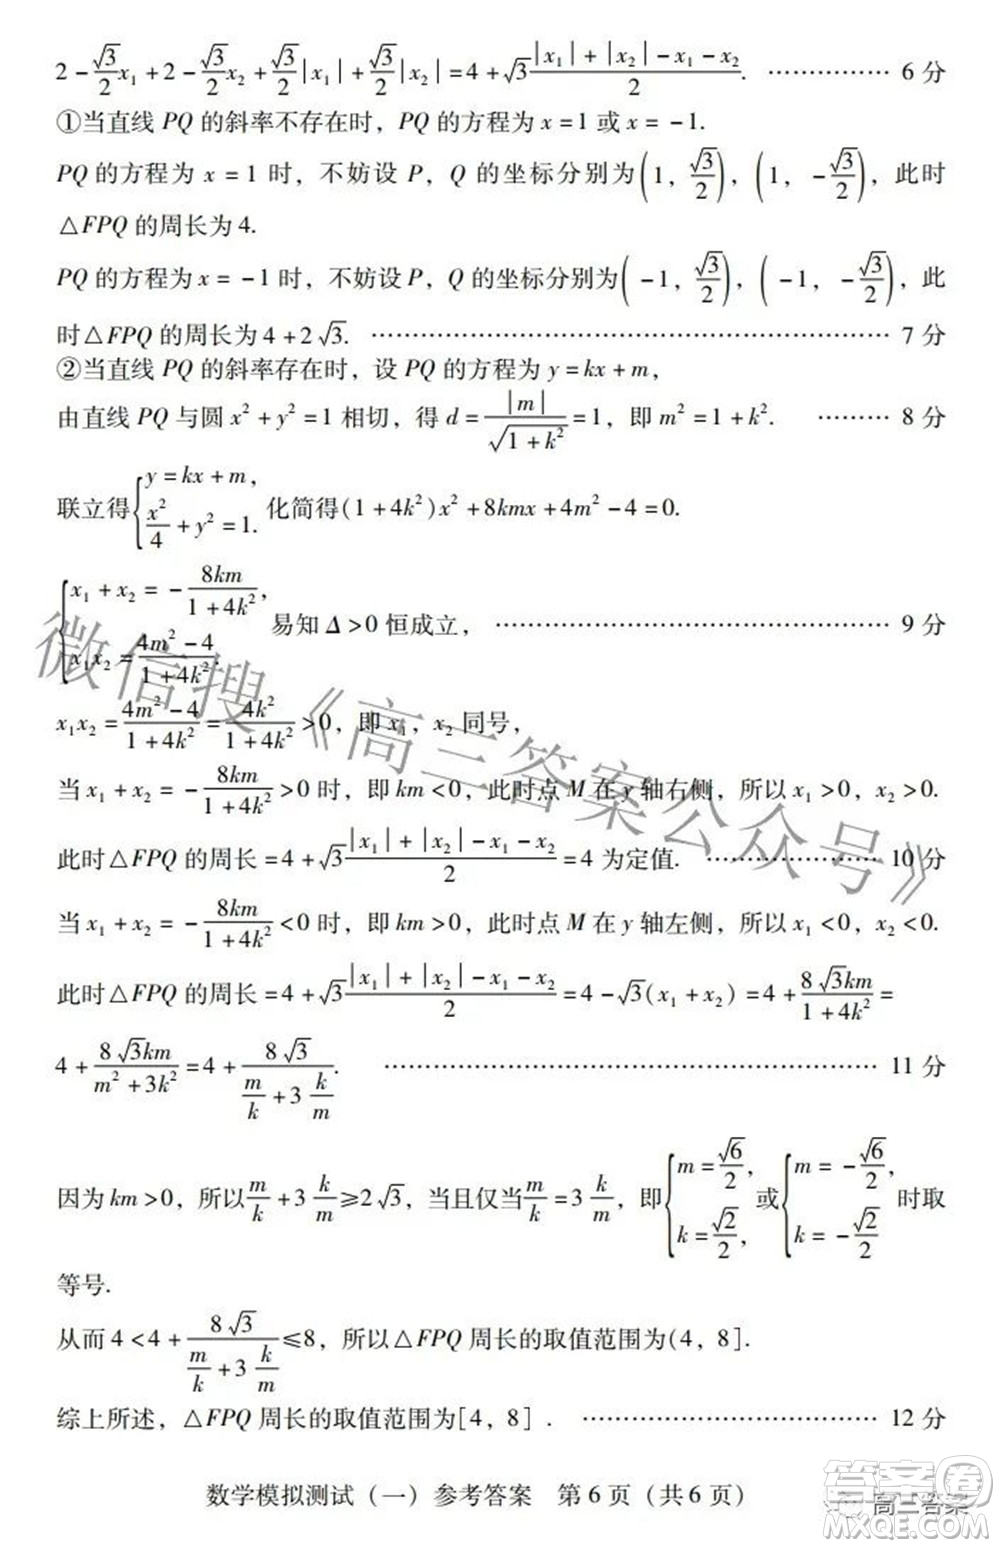 2-\frac{\sqrt{3}}{2}x₁+2-\frac{\sqrt{3}}{2}x₂+\frac{\sqrt{3}}{2}|x₁|+\frac{\sqrt{3}}{2}|x₂|=4+\sqrt{3}\frac{|x₁|+|x₂|-x₁-x₂}{2}. …………… 6 分
①当直线 PQ 的斜率不存在时，PQ 的方程为 x=1 或 x=-1.
PQ 的方程为 x=1 时，不妨设 P，Q 的坐标分别为(1，\frac{\sqrt{3}}{2})，(1，-\frac{\sqrt{3}}{2})，此时
△FPQ 的周长为 4.
PQ 的方程为 x=-1 时，不妨设 P，Q 的坐标分别为(-1，\frac{\sqrt{3}}{2})，(-1，-\frac{\sqrt{3}}{2})，此
时△FPQ 的周长为 4+2\sqrt{3}. …………………………………… 7 分
②当直线 PQ 的斜率存在时，设 PQ 的方程为 y=kx+m，
由直线 PQ 与圆 x²+y²=1 相切，得 d=\frac{|m|}{\sqrt{1+k²}}=1，即 m²=1+k². ……… 8 分
联立得{y=kx+m，\frac{x²}{4}+y²=1. 化简得(1+4k²)x²+8kmx+4m²-4=0.
{x₁+x₂=-\frac{8km}{1+4k²}，x₁x₂=\frac{4m²-4}{1+4k²}. 易知 Δ>0 恒成立， ………………………………… 9 分
x₁x₂=\frac{4m²-4}{1+4k²}=\frac{4k²}{1+4k²}>0，即 x₁，x₂ 同号，
当 x₁+x₂=-\frac{8km}{1+4k²}>0 时，即 km<0，此时点 M 在 y 轴右侧，所以 x₁>0，x₂>0.
此时△FPQ 的周长=4+\sqrt{3}\frac{|x₁|+|x₂|-x₁-x₂}{2}=4 为定值. ………………… 10 分
当 x₁+x₂=-\frac{8km}{1+4k²}<0 时，即 km>0，此时点 M 在 y 轴左侧，所以 x₁<0，x₂<0.
此时△FPQ 的周长=4+\sqrt{3}\frac{|x₁|+|x₂|-x₁-x₂}{2}=4-\sqrt{3}(x₁+x₂)=4+\frac{8\sqrt{3}km}{1+4k²}=
4+\frac{8\sqrt{3}km}{m²+3k²}=4+\frac{8\sqrt{3}}{\frac{m}{k}+3\frac{k}{m}}. …………………………………… 11 分
因为 km>0，所以\frac{m}{k}+3\frac{k}{m}≥2\sqrt{3}，当且仅当\frac{m}{k}=3\frac{k}{m}，即{m=\frac{\sqrt{6}}{2}，k=\frac{\sqrt{2}}{2}，或{m=-\frac{\sqrt{6}}{2}，k=-\frac{\sqrt{2}}{2}时取
等号.
从而 4<4+\frac{8\sqrt{3}}{\frac{m}{k}+3\frac{k}{m}}≤8，所以△FPQ 周长的取值范围为(4，8].
综上所述，△FPQ 周长的取值范围为[4，8]. ……………………………… 12 分
微信搜《高三答案公众号》
数学模拟测试（一）参考答案 第 6 页（共 6 页）
高三答案
答案圈
MXQE.COM